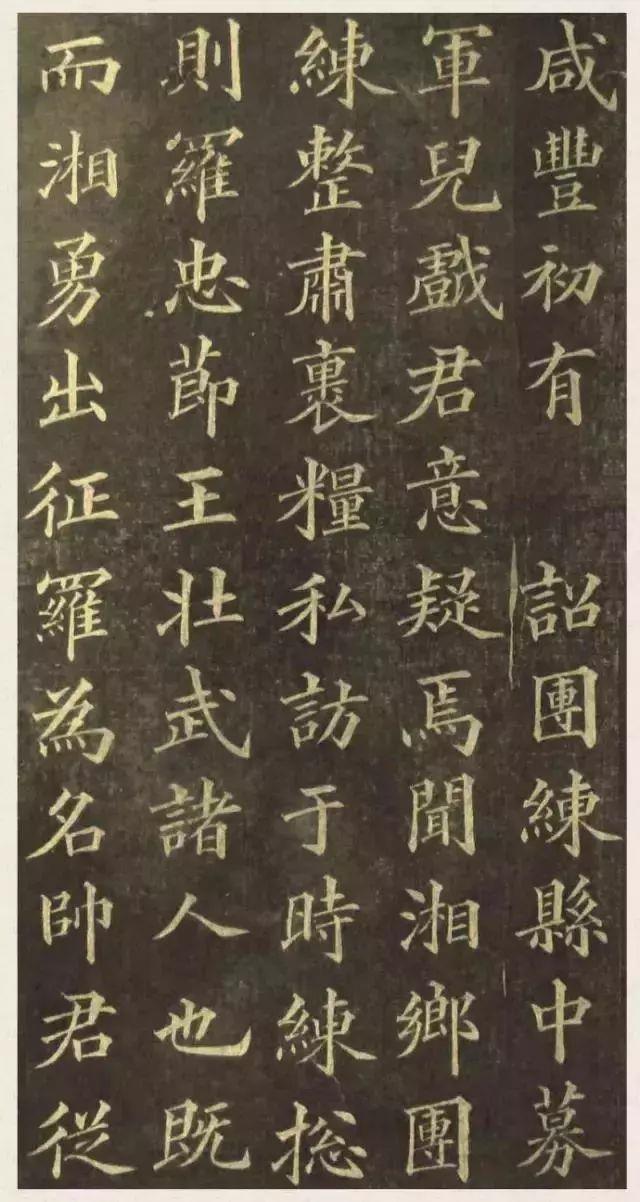 咸豐初有　詔團練縣中募
軍兒戲君意疑焉聞湘鄉團
練整肅裹糧私訪于時練捴
則羅忠節王壯武諸人也既
而湘勇出征羅為名帥君從